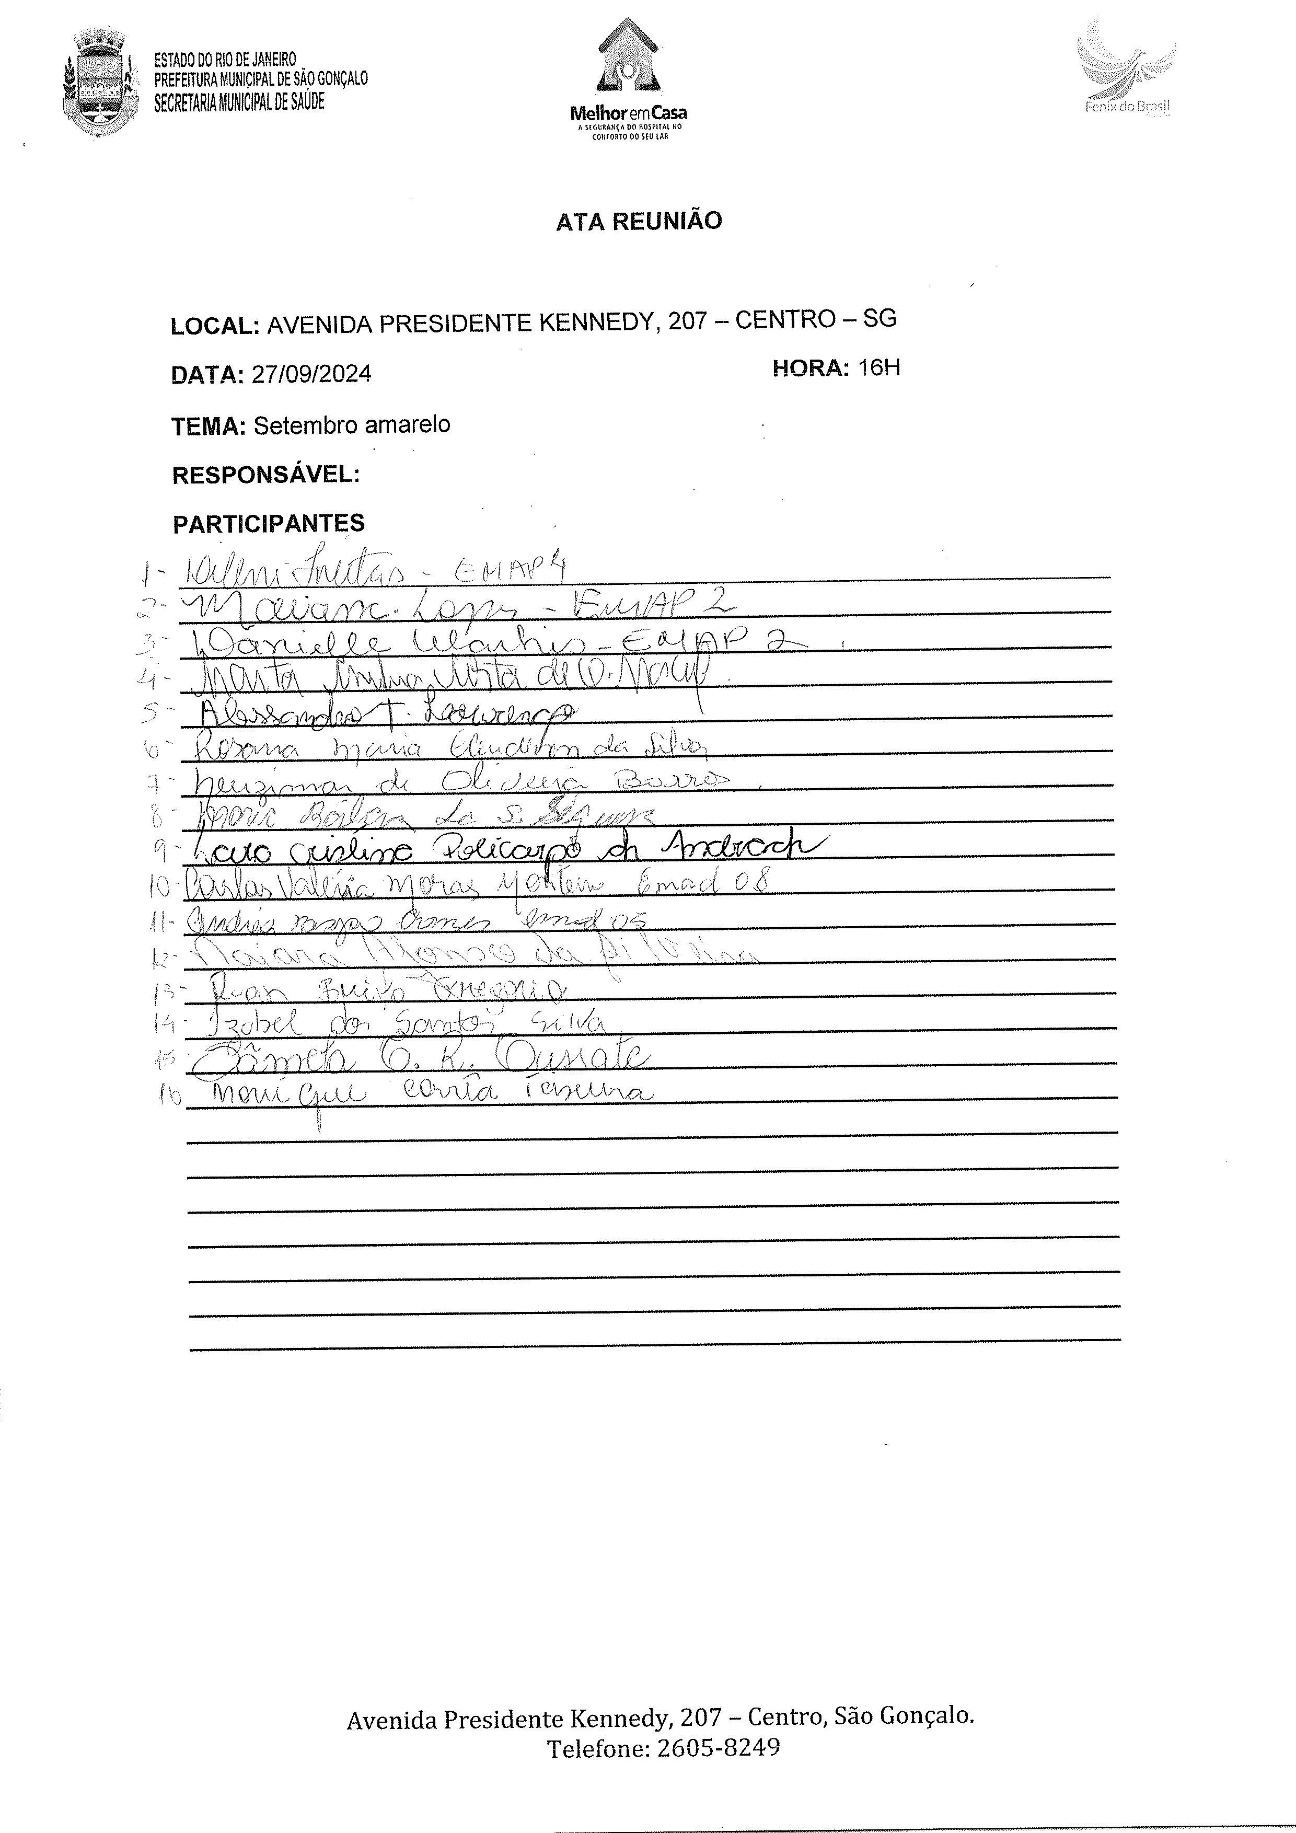 ESTADO DO RIO DE JANEIRO
PREFEITURA MUNICIPAL DE SÃO GONÇALO
SECRETARIA MUNICIPAL DE SAÚDE
Melhor em Casa
A SEGURANÇA DO HOSPITAL NO
CONFORTO DO SEU LAR
Fenix do Brasil
ATA REUNIÃO
LOCAL: AVENIDA PRESIDENTE KENNEDY, 207 – CENTRO – SG
DATA: 27/09/2024 HORA: 16H
TEMA: Setembro amarelo
RESPONSÁVEL:
PARTICIPANTES
1- Freitas - EMAP 4
2- Mariana Lopes - EMAP 2
3- Danielle - EMAP 2
4- Marta de O.
5- Alessandro T. Lourenço
6- Rosana Maria da Silva
7- Neuzimar de Oliveira Barros
8- da S.
9- Cristina Policarpo de Andrade
10- Valéria Moraes Monteiro Emad 08
11- Andréa Gomes emad 05
12- Naiara Afonso da Silveira
13- Ruan Brito Gregorio
14- Izabel dos Santos Silva
15- Pâmela C. R. Duarte
16 Monique Corrêa Teixeira
Avenida Presidente Kennedy, 207 – Centro, São Gonçalo.
Telefone: 2605-8249